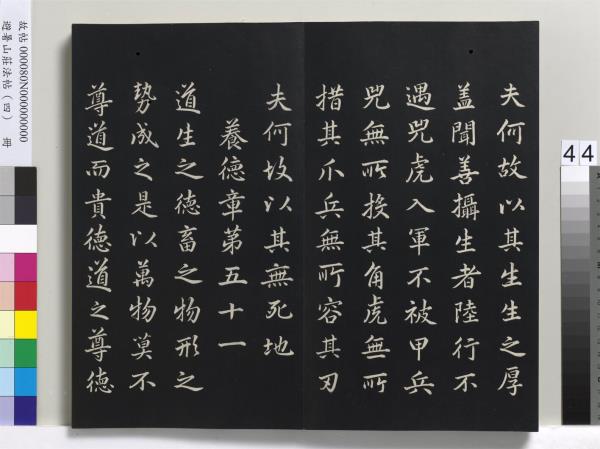 夫何故以其生生之厚
盖聞善攝生者陸行不
遇兕虎入軍不被甲兵
兕無所投其角虎無所
措其爪兵無所容其刃
夫何故以其無死地
養德章第五十一
道生之德畜之物形之
勢成之是以萬物莫不
尊道而貴德道之尊德
故帖 000080N000000000
避暑山莊法帖(四) 冊
44